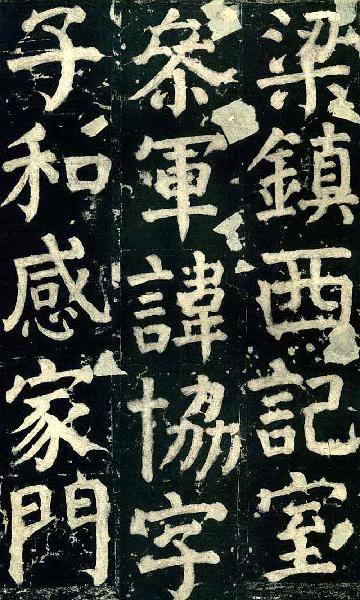 梁鎮西記室
叅軍諱協字
子和感家門